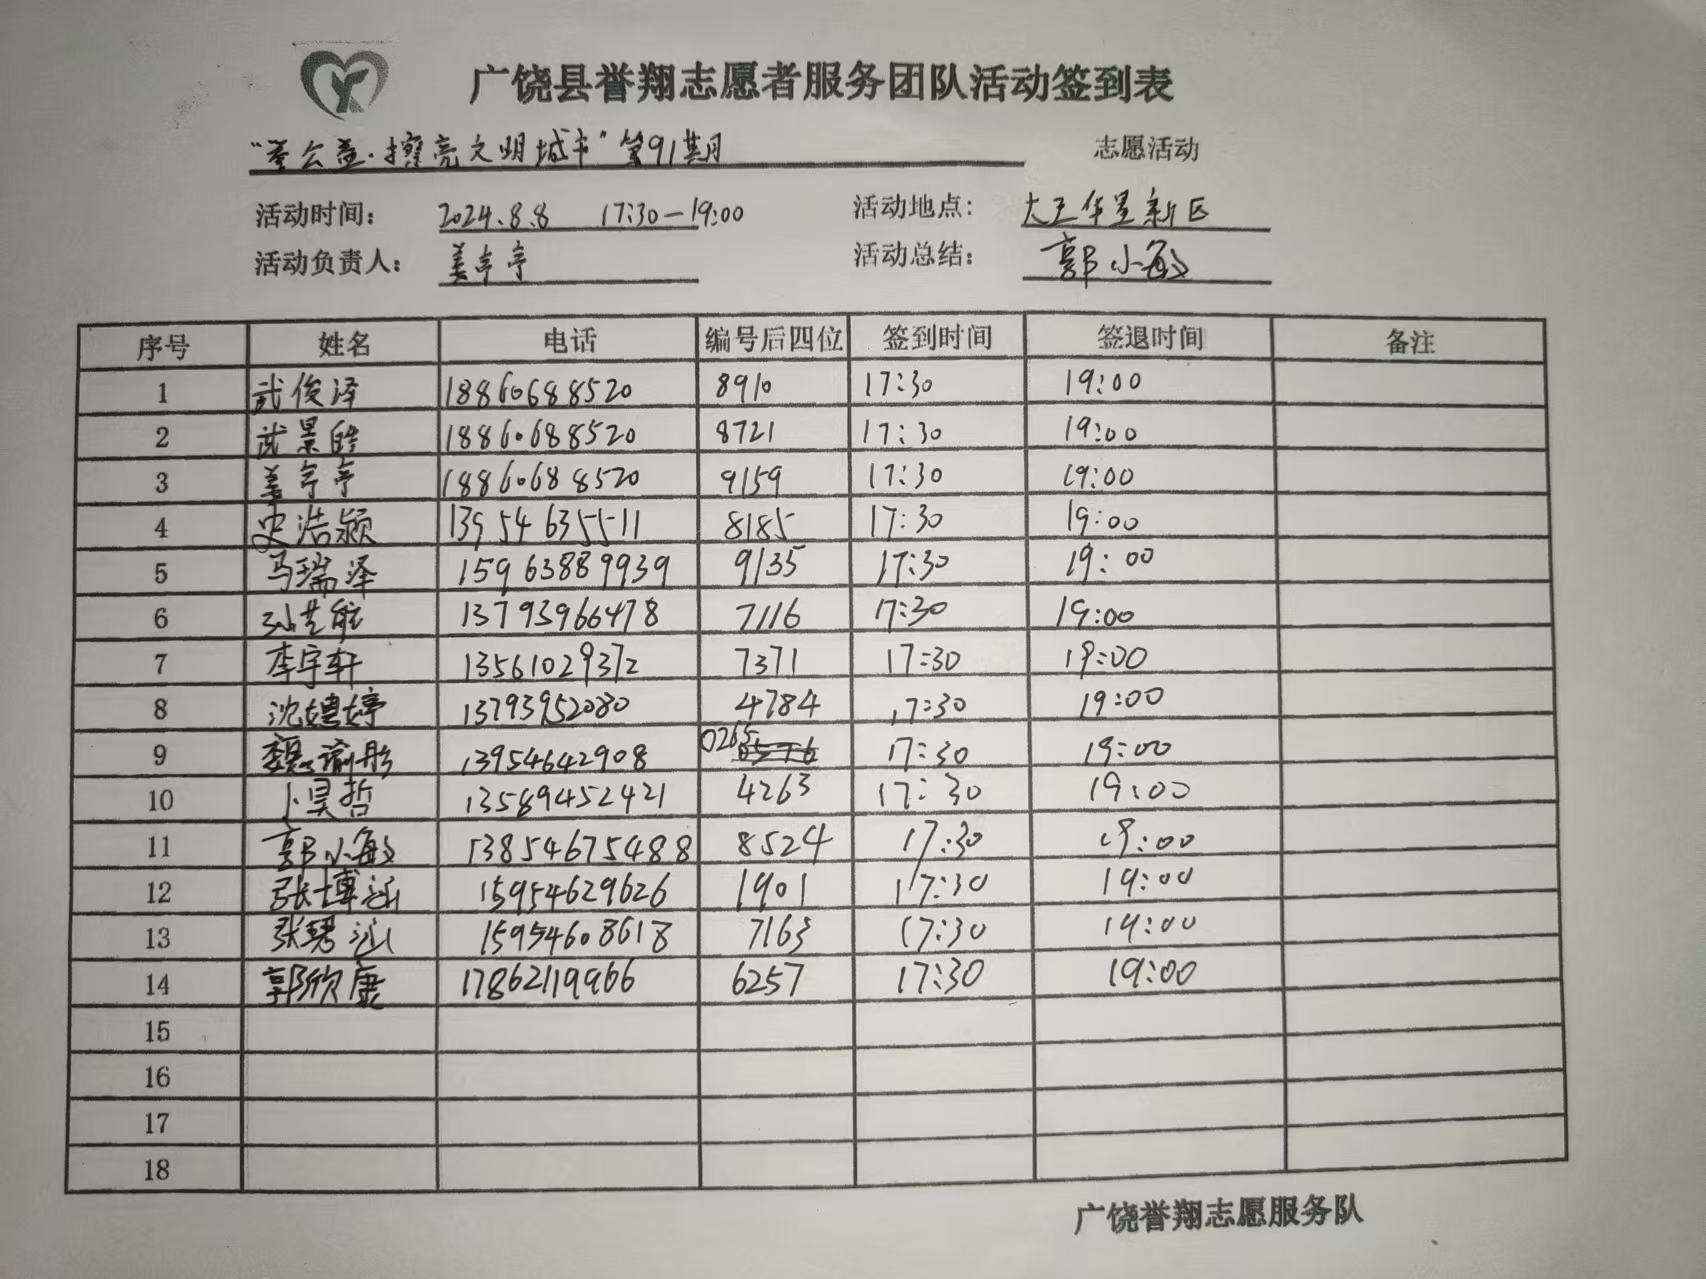 广饶县誉翔志愿者服务团队活动签到表
"公益·擦亮文明城市"第91期 志愿活动
活动时间: 2024.8.8 17:30-19:00 活动地点: 大王华星新区
活动负责人: 姜亭亭 活动总结: 郭小敏
序号 姓名 电话 编号后四位 签到时间 签退时间 备注
1 武俊泽 18860688520 8910 17:30 19:00
2 武景皓 18860688520 8721 17:30 19:00
3 姜亭亭 18860688520 9159 17:30 19:00
4 史浩颍 13954635511 8185 17:30 19:00
5 马瑞泽 15963889939 9135 17:30 19:00
6 孙艺航 13793966478 7116 17:30 19:00
7 李宇轩 13561029372 7371 17:30 19:00
8 沈婷 13793952080 4784 17:30 19:00
9 魏瑜彤 13954642908 0265 17:30 19:00
10 卜昊哲 13589452421 4263 17:30 19:00
11 郭小敏 13854675488 8524 17:30 19:00
12 张博涵 15954629626 1901 17:30 19:00
13 张珺涵 15954608618 7163 17:30 19:00
14 郭欣康 17862119966 6257 17:30 19:00
15
16
17
18
广饶誉翔志愿服务队